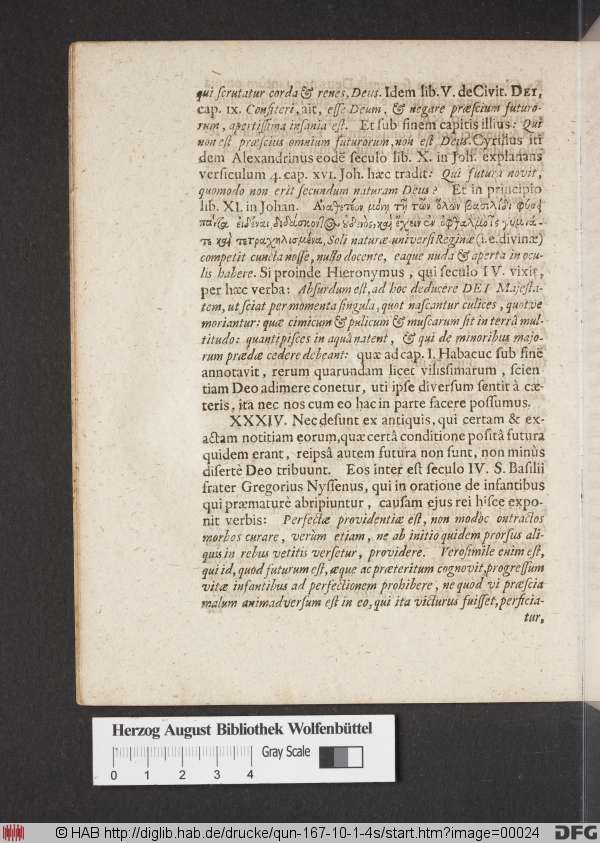 qui scrutatur corda & renes, Deus. Idem lib. V. de Civit. DEI,
cap. IX. Confiteri, ait, esse Deum, & negare præscium futuro-
rum, apertissima insania est. Et sub finem capitis illius: Qui
non est præscius omnium futurorum, non est Deus. Cyrillus iti
dem Alexandrinus eodē seculo lib. X. in Joh. explanans
versiculum 4. cap. XVI. Joh. hæc tradit: Qui futura novit,
quomodo non erit secundum naturam Deus? Et in principio
lib. XI. in Johan. μόνη τῇ τῶν ὅλων βασιλίδι φύσει
πάντα εἰδέναι διδάσκοντος οὐδενὸς, καὶ ἔχειν ἐν ὀφθαλμοῖς γυμνά-
τε καὶ τετραχηλισμένα, Soli naturæ universi Reginæ (i. e. divinæ)
competit cuncta nosse, nullo docente, eaque nuda & aperta in ocu-
lis habere. Si proinde Hieronymus, qui seculo IV. vixit,
per hæc verba: Absurdum est, ad hoc deducere DEI Majesta-
tem, ut sciat per momenta singula, quot nascantur culices, quotve
moriantur: quæ cimicum & pulicum & muscarum sit in terrâ mul-
titudo: quanti pisces in aquâ natent, & qui de minoribus majo-
rum prædæ cedere debeant: quæ ad cap. I. Habacuc sub finē
annotavit, rerum quarundam licet vilissimarum, scien
tiam Deo adimere conetur, uti ipse diversum sentit à cæ-
teris, ita nec nos cum eo hac in parte facere possumus.
XXXIV. Nec desunt ex antiquis, qui certam & ex-
actam notitiam eorum, quæ certâ conditione positâ futura
quidem erant, reipsâ autem futura non sunt, non minùs
disertè Deo tribuunt. Eos inter est seculo IV. S. Basilii
frater Gregorius Nyssenus, qui in oratione de infantibus
qui præmaturè abripiuntur, causam ejus rei hisce expo-
nit verbis: Perfectæ providentiæ est, non modòc ontractos
morbos curare, verùm etiam, ne ab initio quidem prorsus ali-
quis in rebus vetitis versetur, providere. Verosimile enim est,
qui id, quod futurum est, æque ac præteritum cognovit, progressum
vitæ infantibus ad perfectionem prohibere, ne quod vi præscia
malum animadversum est in eo, qui ita victurus fuisset, perficia-
tur,
Herzog August Bibliothek Wolfenbüttel
Gray Scale
0 1 2 3 4
© HAB http://diglib.hab.de/drucke/qun-167-10-1-4s/start.htm?image=00024
DFG